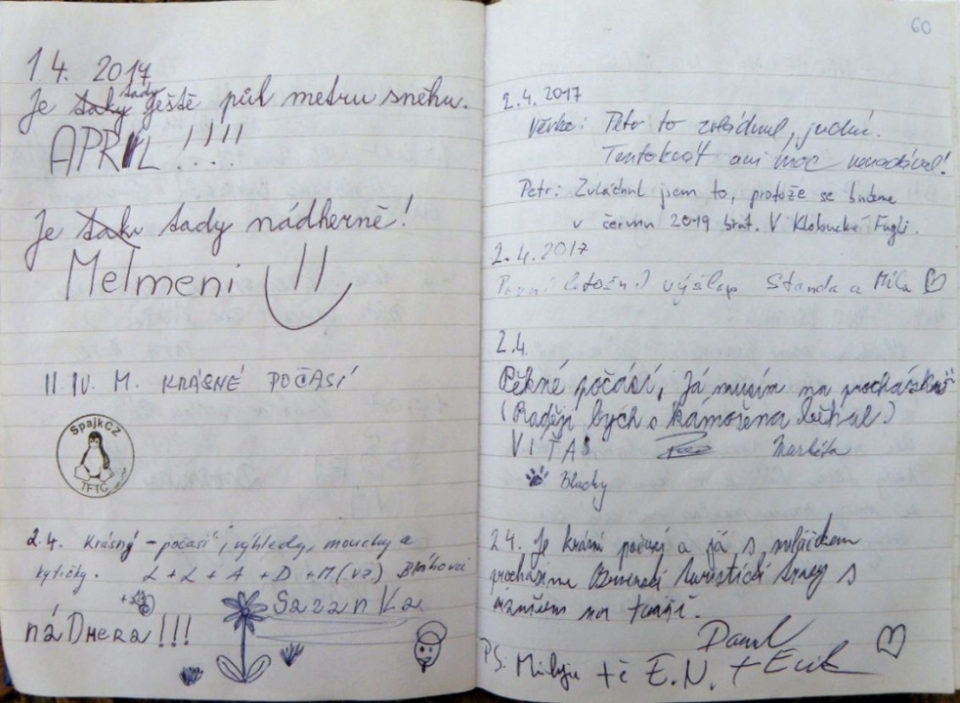 1 4. 2017
Je taky tady ještě půl metru sněhu.
APRIL !!!!
Je taky tady nádherně!
Melmeni
II. IV. M. KRÁSNÉ POČASÍ
SpajkCZ
TFTC
2.4. Krásný - počasí, výhledy, mouchy a
kytičky. L + L + A + D + M (vž)
SazanKa
náDHera!!!
60
2.4.2017
Věrka: Péťo to zvládnul, judní.
Tentokrát ani moc nenadával!
Petr: Zvládnul jsem to, protože se budeme
v červnu 2019 brát. V Klobucké Fugli.
2.4.2017
První letošní výšlap Standa a Míla
2.4.
Pěkné počásí, Já musím na procházku
(Raději bych s kámošema
VÍŤA Markéta
Blacky
2.4. Je krásní počasí a já s miláčkem
turistické trasy s
úsměvem na tváři.
PS: Miluju tě E.N. + Erik